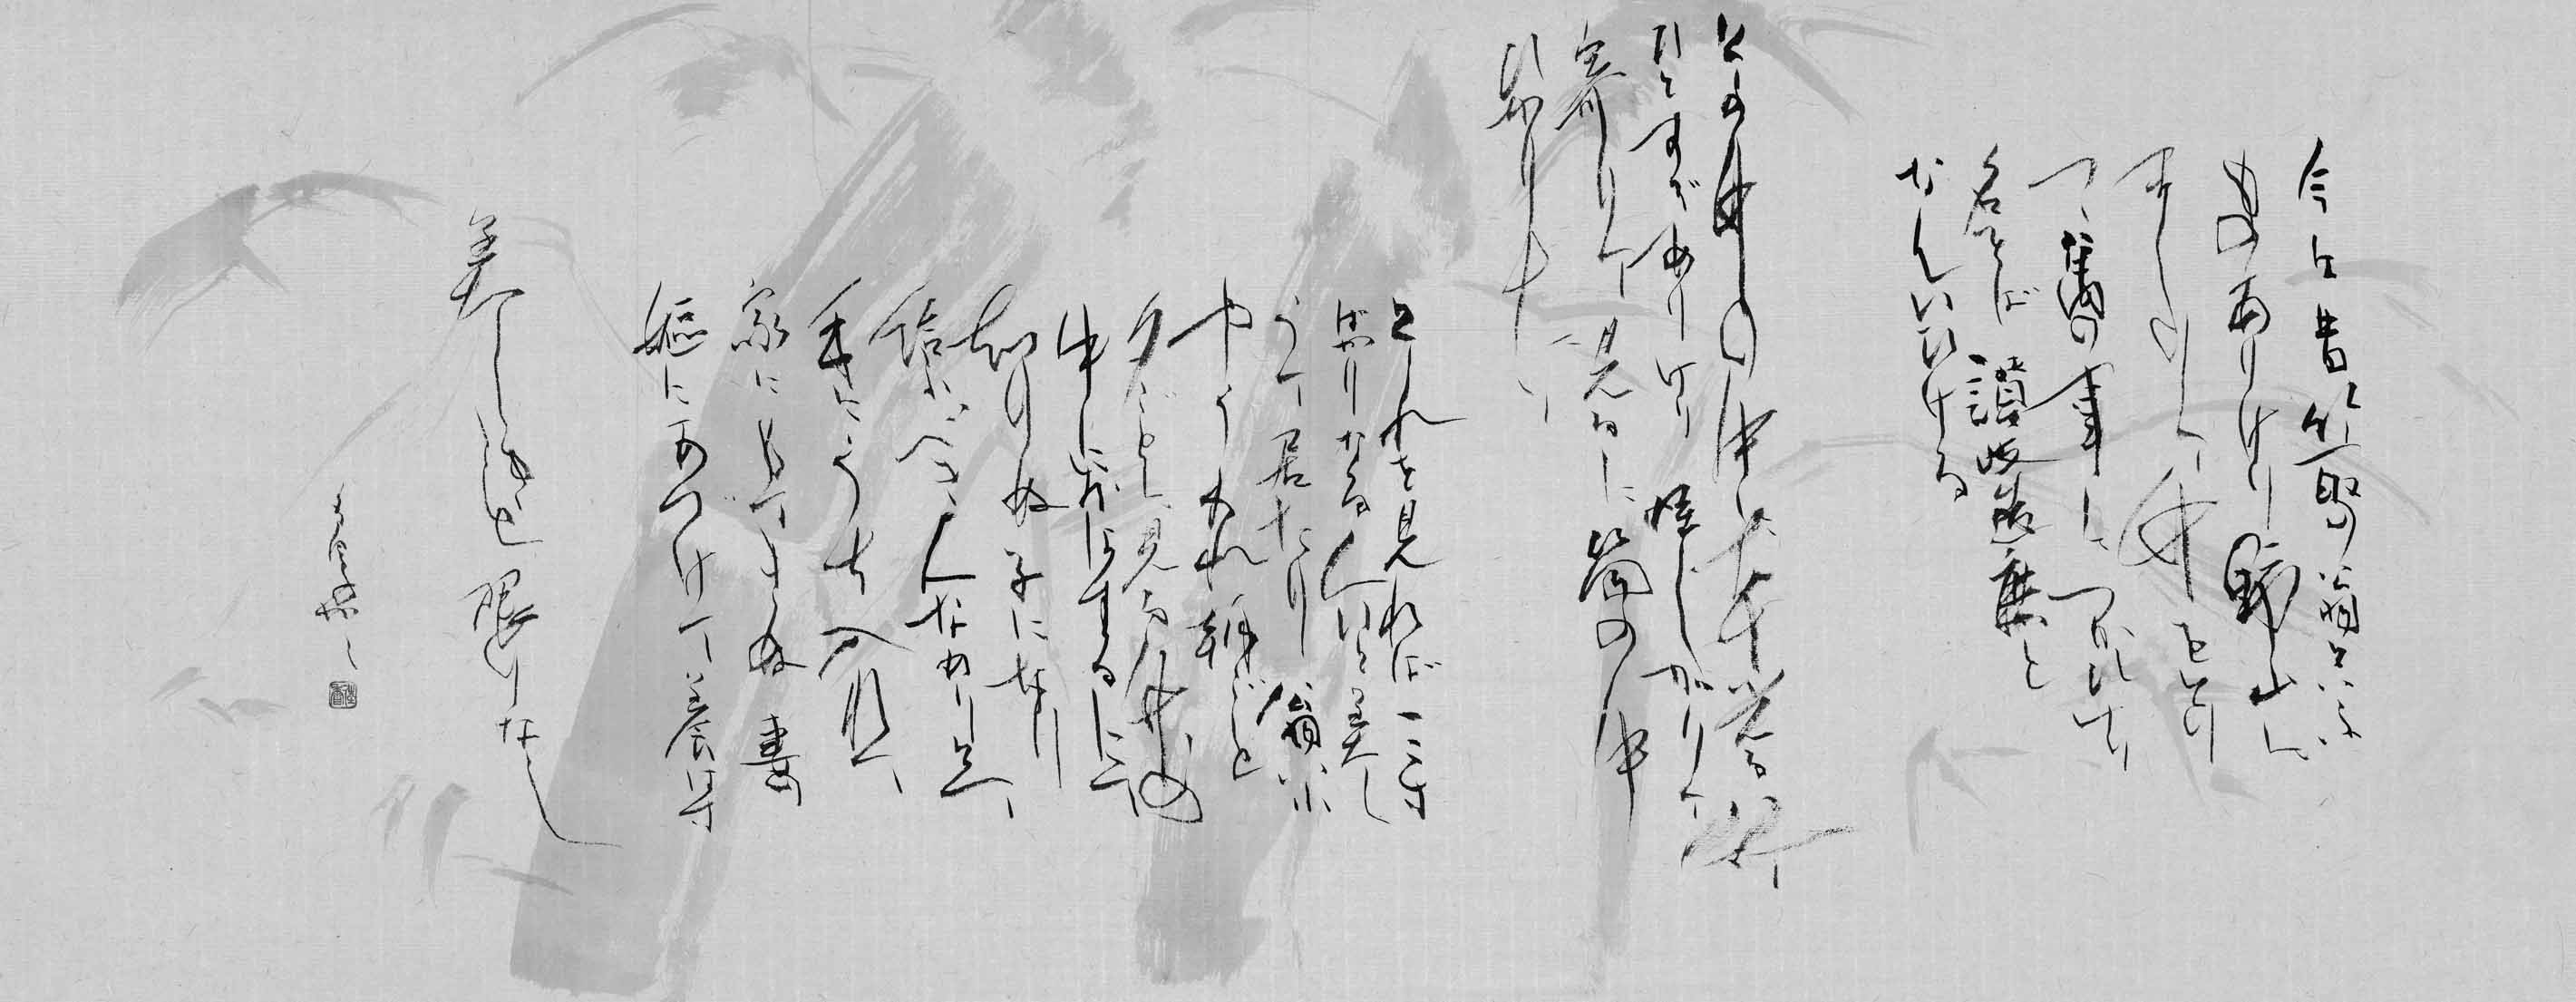 今は昔竹取翁といふ
ものありけり野山に
まじりて竹をとり
つゝ萬の事につかひけり
名をば讃岐造麿と
なんいひける
その竹の中に本光る竹
ひとすぢありけり怪しがりて
寄りて見るに筒の中
ひかりたり
それを見れば三寸
ばかりなる人いと美しうて
居たり翁いふ
やうわれ朝ごと
夕ごとに見る竹の
中におはするにて
知りぬ子になり
給ふべき人なめりとて
手にうち入れて
家にもてきぬ妻の
嫗にあづけて養はす
美しき事限りなし